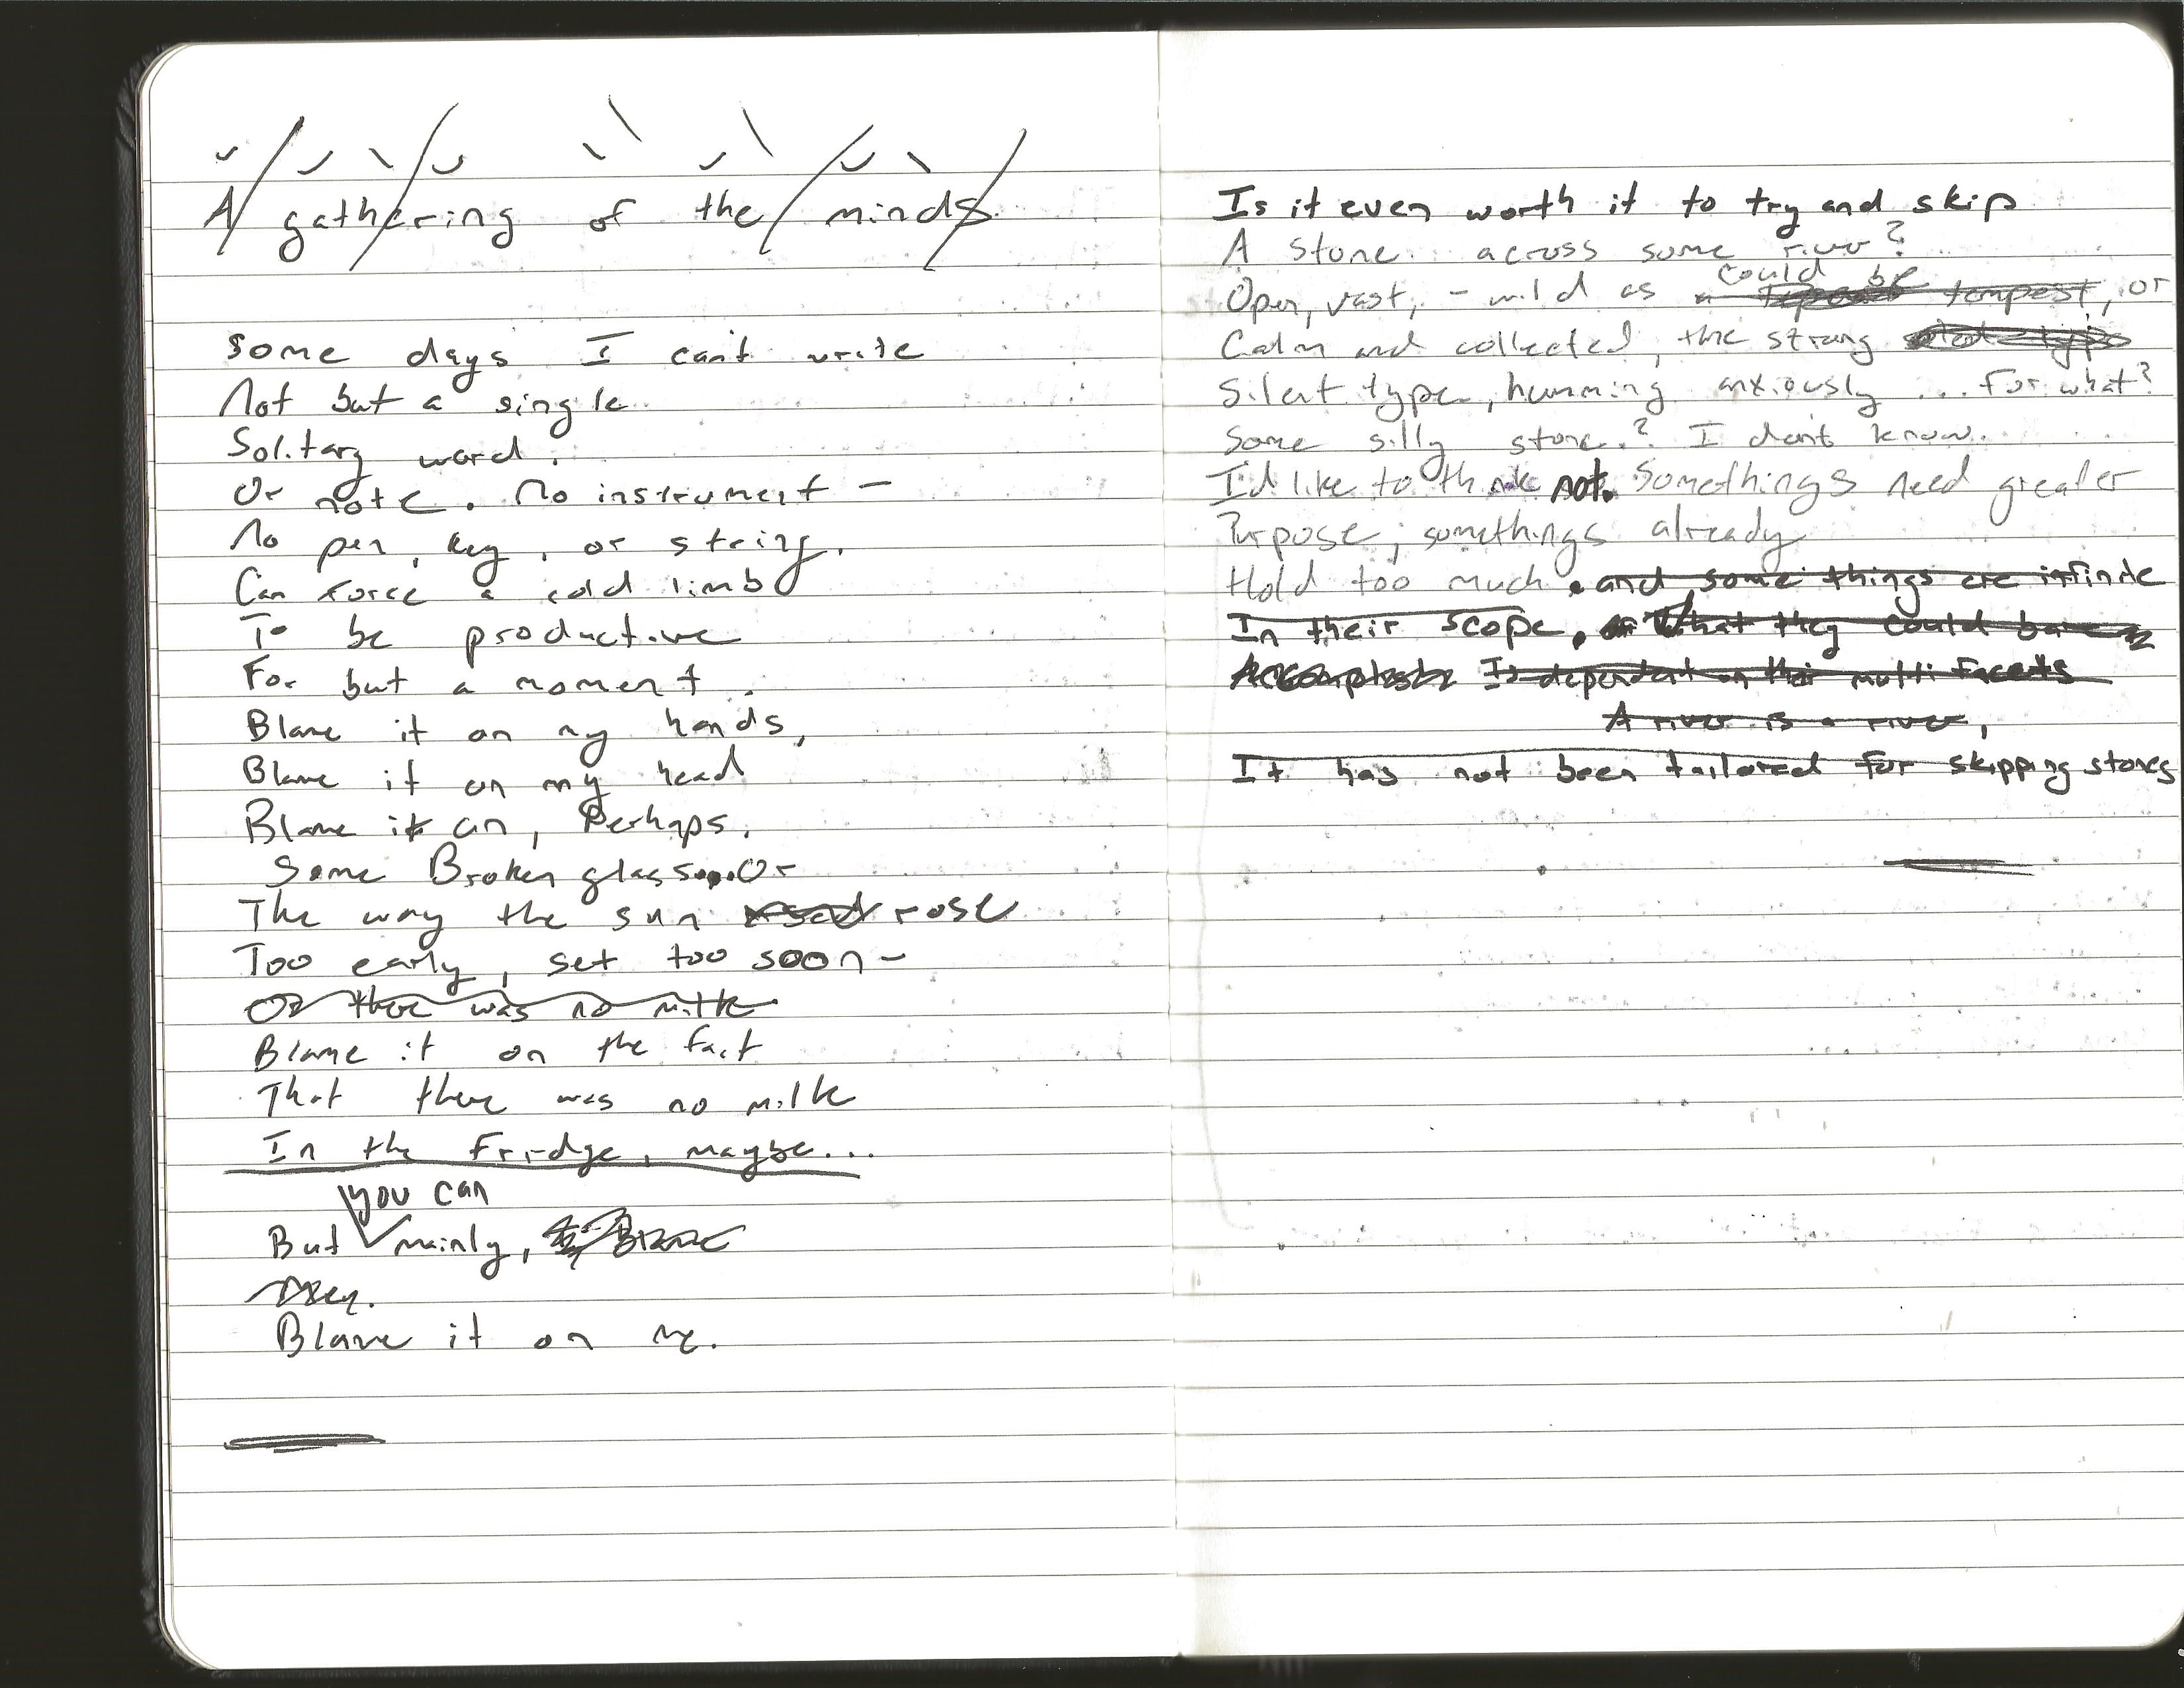 A gathering of the minds.
Some days I can't write
Not but a single
Solitary word.
Or note. No instrument -
No pen, key, or string,
Can force a cold limb
To be productive
For but a moment.
Blame it on my hands,
Blame it on my head
Blame it on, Perhaps,
Some Broken glass....Or
The way the sun rose
Too early, set too soon-
Or there was no milk
Blame it on the fact
That there was no milk
In the Fridge, maybe...
you can
But mainly, Blame
Blame it on me.
Is it even worth it to try and skip
A stone across some river?
could be
Open, vast, - mild as a tempest, or
Calm and collected, the strong
Silent type, humming anxiously ... For what?
Some silly stone? I don't know.
I'd like to think not. Somethings need greater
Purpose, somethings already
Hold too much. and some things are infinite
In their scope. What they could
Accomplish Is dependent on their multi facets
A river is a river,
It has not been tailored for skipping stones